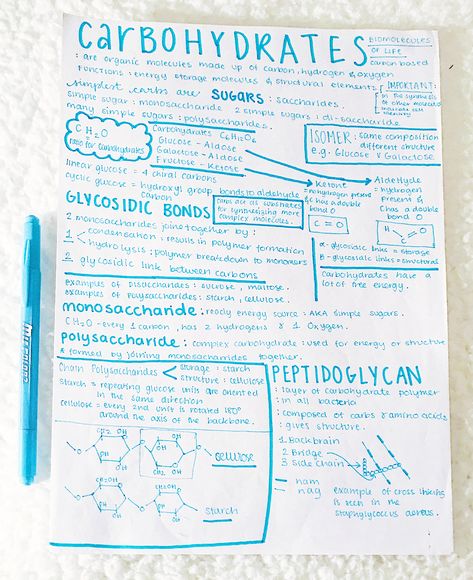 CARBOHYDRATES
BIOMOLECULES
OF LIFE
carbon based
: are organic molecules made up of carbon, hydrogen & oxygen
Functions: energy storage molecules & structural elements
IMPORTANT:
in the synthesis
of other molecules
simplest carbs are SUGARS: saccharides.
simple sugar: monosaccharide 2 simple sugars: di-saccharide
many simple sugars: polysaccharides.
CH2O
ratio for carbohydrates
Carbohydrates C6H12O6
Glucose - Aldose
Galactose - Aldose
Fructose - Ketose
ISOMER: same composition
different structure
e.g. Glucose & Galactose
linear glucose = 4 chiral carbons
cyclic glucose = hydroxyl group bonds to aldehyde
carbon
Ketone
= no hydrogen present
& C has a double
bond O
C=O
Aldehyde
= hydrogen
present &
C has a double
bond O
H
C=O
GLYCOSIDIC BONDS
carbs act as substrates
for synthesising more
complex molecules.
2 monosaccharides joined together by:
1 condensation: results in polymer formation
hydrolysis: polymer breakdown to monomers
2 glycosidic link between carbons
α-glycosidic links = storage
β-glycosidic links = structural
carbohydrates have a
lot of free energy.
examples of disaccharides: sucrose, maltose.
examples of polysaccharides: starch, cellulose.
monosaccharide: ready energy source: AKA simple sugars.
CH2O = every 1 carbon, has 2 hydrogens & 1 oxygen.
polysaccharide: complex carbohydrate: used for energy or structure
& formed by joining monosaccharides together.
Chain Polysaccharides < storage: starch
structure: cellulose
starch = repeating glucose units are oriented
in the same direction
cellulose = every 2nd unit is rotated 180°
around the axis of the backbone.
cellulose
starch
PEPTIDOGLYCAN
: layer of carbohydrate polymer
: in all bacteria
: composed of carbs & amino acids
: gives structure.
1 Backbrain
2 Bridge
3 Side Chain
nam
nag
example of cross linking
is seen in the
staphylococcus aureus.